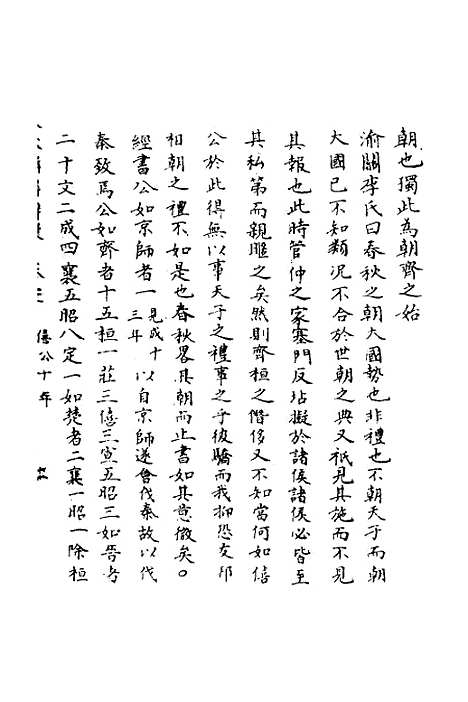 朝也獨此為朝齊之始
渝關李氏曰春秋之朝大國勢也非禮也不朝天子而朝
大國已不知類况不合於世朝之典又祇見其施而不見
其報也此時管仲之家塞門反坫擬於諸侯諸侯必皆至
其私第而親暱之矣然則齊桓之僭侈又不知當何如僖
公於此得無以事天子之禮事之乎彼驕而我抑恐友邦
相朝之禮不如是也春秋畧其朝而止書如其意微矣。
經書公如京師者一見成十三年以自京師遂會伐秦故以伐
秦致焉公如齊者十五桓一莊三僖三宣五昭三如晉者
二十文二成四襄五昭八定一如楚者二襄一昭一除桓
僖公十年